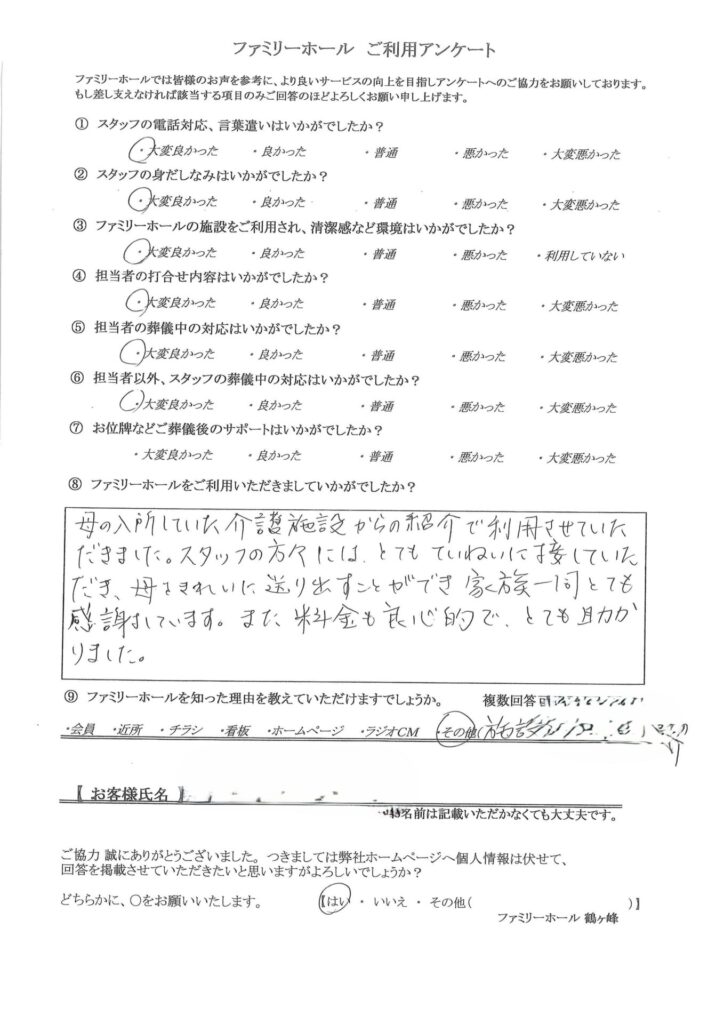 ファミリーホール ご利用アンケート
ファミリーホールでは皆様のお声を参考に、より良いサービスの向上を目指しアンケートへのご協力をお願いしております。
もし差し支えなければ該当する項目のみご回答のほどよろしくお願い申し上げます。
① スタッフの電話対応、言葉遣いはいかがでしたか？
・大変良かった ・良かった ・普通 ・悪かった ・大変悪かった
② スタッフの身だしなみはいかがでしたか？
・大変良かった ・良かった ・普通 ・悪かった ・大変悪かった
③ ファミリーホールの施設をご利用され、清潔感など環境はいかがでしたか？
・大変良かった ・良かった ・普通 ・悪かった ・利用していない
④ 担当者の打合せ内容はいかがでしたか？
・大変良かった ・良かった ・普通 ・悪かった ・大変悪かった
⑤ 担当者の葬儀中の対応はいかがでしたか？
・大変良かった ・良かった ・普通 ・悪かった ・大変悪かった
⑥ 担当者以外、スタッフの葬儀中の対応はいかがでしたか？
・大変良かった ・良かった ・普通 ・悪かった ・大変悪かった
⑦ お位牌などご葬儀後のサポートはいかがでしたか？
・大変良かった ・良かった ・普通 ・悪かった ・大変悪かった
⑧ ファミリーホールをご利用いただきましていかがでしたか？
母の入所していた介護施設からの紹介で利用させていた
だきました。スタッフの方々には、とてもていねいに接していた
だき、母をきれいに送り出すことができ家族一同とても
感謝しています。また料金も良心的で、とても助か
りました。
⑨ ファミリーホールを知った理由を教えていただけますでしょうか。 複数回答
・会員 ・近所 ・チラシ ・看板 ・ホームページ ・ラジオCM ・その他(施設
【 お客様氏名 】
名前は記載いただかなくても大丈夫です。
ご協力 誠にありがとうございました。つきましては弊社ホームページへ個人情報は伏せて、
回答を掲載させていただきたいと思いますがよろしいでしょうか？
どちらかに、〇をお願いいたします。 【はい ・ いいえ ・ その他( )】
ファミリーホール 鶴ヶ峰